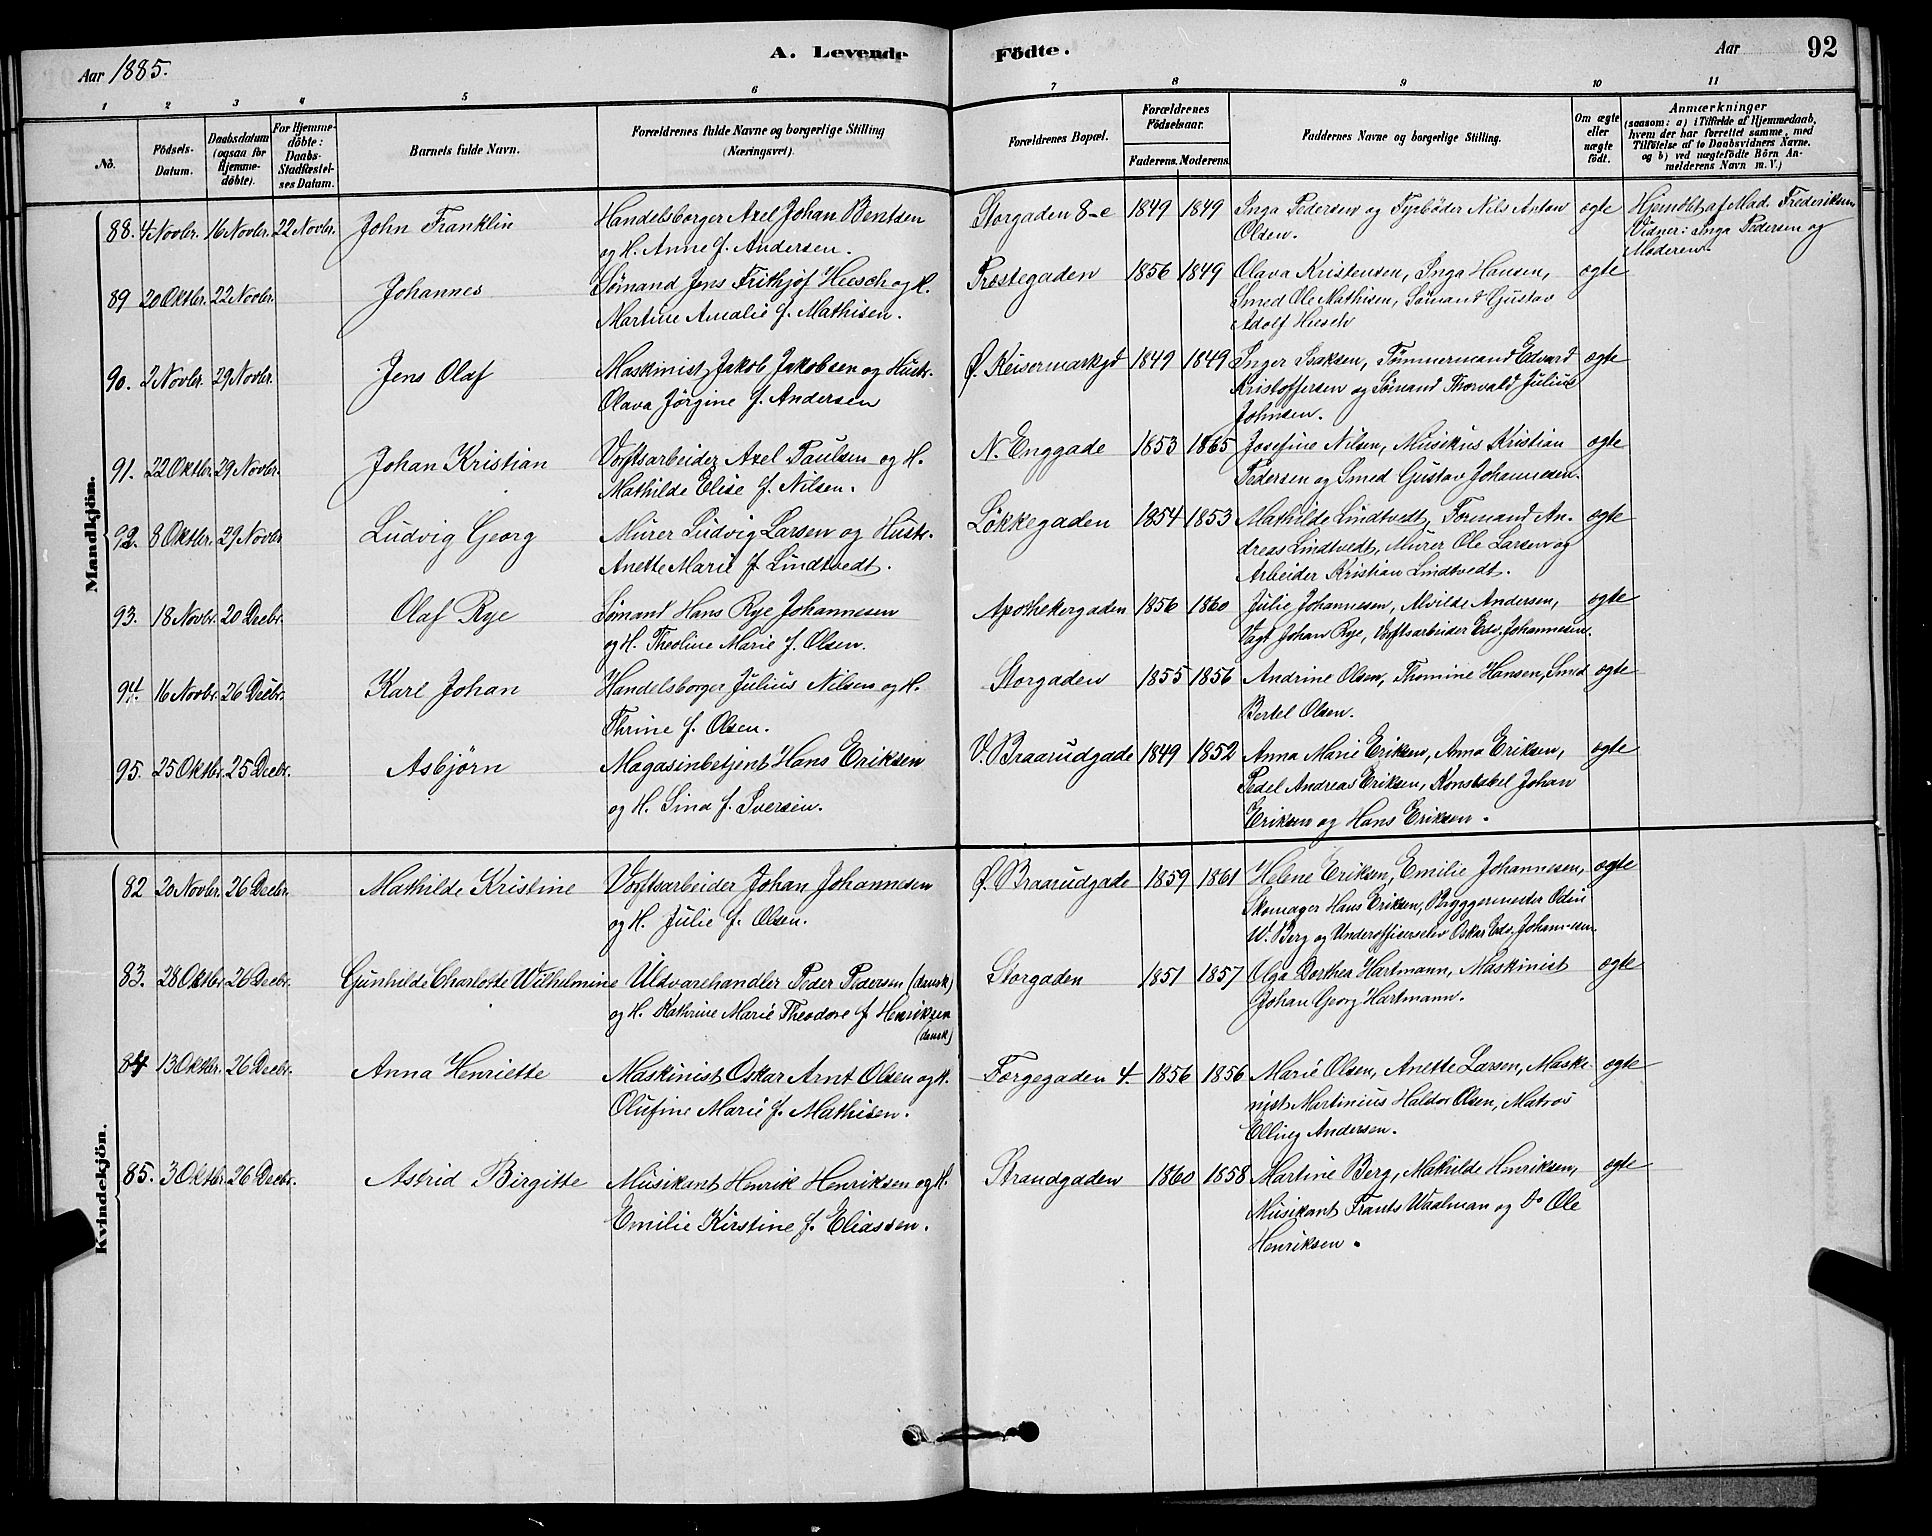 Aar 1885.
A. Levende Födte.
Aar
92
1 2 3 4 5 6 7 8 9 10 11
No.
Födsels-
Datum.
Daabsdatum
(ogsaa for
Hjemme-
döbte).
For Hjemme-
döbte:
Daabs-
Stadfæstel-
ses Datum.
Barnets fulde Navn.
Forældrenes fulde Navne og borgerlige Stilling
(Næringsvei).
Forældrenes Bopæl.
Forældrenes
Födselsaar.
Faderens. Moderens.
Faddernes Navne og borgerlige Stilling.
Om ægte
eller
uægte
födt.
Anmærkninger
(saasom: a) i Tilfælde af Hjemmedaab,
hvem der har forrettet samme, med
Tilföielse af to Daabsvidners Navne.
og b) ved uægtefödte Börn An-
melderens Navn m. V.)
Mandkjön.
88. 4 Novbr. 16 Novbr. 22 Novbr. John Franklin Handelsborger Axel Johan Bentsen Storgaden 8-e 1849 1849 Inga Pedersen og Fyrbøder Nils Anton ægte Hjemdbt af Mad. Frederiksen
og H. Anne f. Andersen. Olsen. Vidner: Inga Pedersen og
Moderen
89 20 Oktbr. 22 Novbr. Johannes Sømand Jens Frithjof Hiesch og H. Prostegaden 1856 1849 Olava Kristensen, Inga Hansen, ægte
Martine Amalie f. Mathisen. Smed Ole Mathisen, Sømand Gustav
Adolf Hiesch
90. 2 Novbr. 29 Novbr. Jens Olaf Maskinist Jakob Jakobsen og Hustr. Ø. Keisermarkgd 1849 1849 Inger Isaksen, Tømmermand Edvard ægte
Olava Jørgine f. Andersen Kristoffersen og Sømand Thorvald Julius
Johnsen.
91. 22 Oktbr. 29 Novbr. Johan Kristian Værftsarbeider Axel Paulsen og H. N. Enggade 1853 1865 Josefine Nilsen, Musikus Kristian ægte
Mathilde Elise f. Nilsen. Pedersen og Smed Gustav Johannesen.
92. 8 Oktbr. 29 Novbr Ludvig Georg Murer Ludvig Larsen og Hustr. Løkkegaden 1854 1853 Mathilde Lindtvedt, Formand An- ægte
Anette Marie f Lindtvedt. dreas Lindtvedt, Murer Ole Larsen og
Arbeider Kristian Lindtvedt.
93. 18 Novbr. 20 Decbr. Olaf Rye Sømand Hans Rye Johannesen Apothekergaden 1856 1860 Julie Johannesen, Alvilde Andersen, ægte
og H. Theoline Marie f. Olsen. Vagt Johan Rye, Værftsarbeider Edv. Johannesen.
94. 16 Novbr. 26 Decbr. Karl Johan Handelsborger Julius Nilsen og H. Storgaden 1855 1856 Andrine Olsen, Thomine Hansen, Smed ægte
Thrine f. Olsen. Bertel Olsen.
95. 25 Oktbr. 25 Decbr. Asbjørn Magasinbetjent Hans Eriksen V. Braarudgade 1849 1852 Anna Marie Eriksen, Anna Eriksen, ægte
og H. Sina f. Iversen. Pedel Andreas Eriksen, Konstabel Johan
Eriksen og Hans Eriksen.
Kvindekjön.
82 20 Novbr. 26 Decbr. Mathilde Kristine Værftsarbeider Johan Johannesen Ø. Braarudgade 1859 1861 Helene Eriksen, Emilie Johannesen, ægte
og H. Julie f. Olsen. Skomager Hans Eriksen, Bryggermester Odin
W. Berg og Underofficerselev Oskar Edv. Johannesen
83. 28 Oktbr 26 Decbr. Gunhilde Charlotte Wilhelmine Uldvarehandler Peder Pedersen (dansk) Storgaden 1851 1857 Olga Dorthea Hartmann, Maskinist ægte
og H. Kathrine Marie Theodore f Henriksen Johan Georg Hartmann.
(dansk)
84 13 Oktbr. 26 Decbr. Anna Henriette Maskinist Oskar Arnt Olsen og H. Færgegaden 4. 1856 1856 Marie Olsen, Anette Larsen, Maski- ægte
Olufine Marie f. Mathisen. nist Martinius Haldor Olsen, Matros
Elling Andersen.
85. 3 Oktbr. 26 Decbr. Astrid Birgitte Musikant Henrik Henriksen og H. Strandgaden 1860 1858 Martine Berg, Mathilde Henriksen, ægte
Emilie Kirstine f. Eliassen. Musikant Frants Waalman og Do Ole
Henriksen.